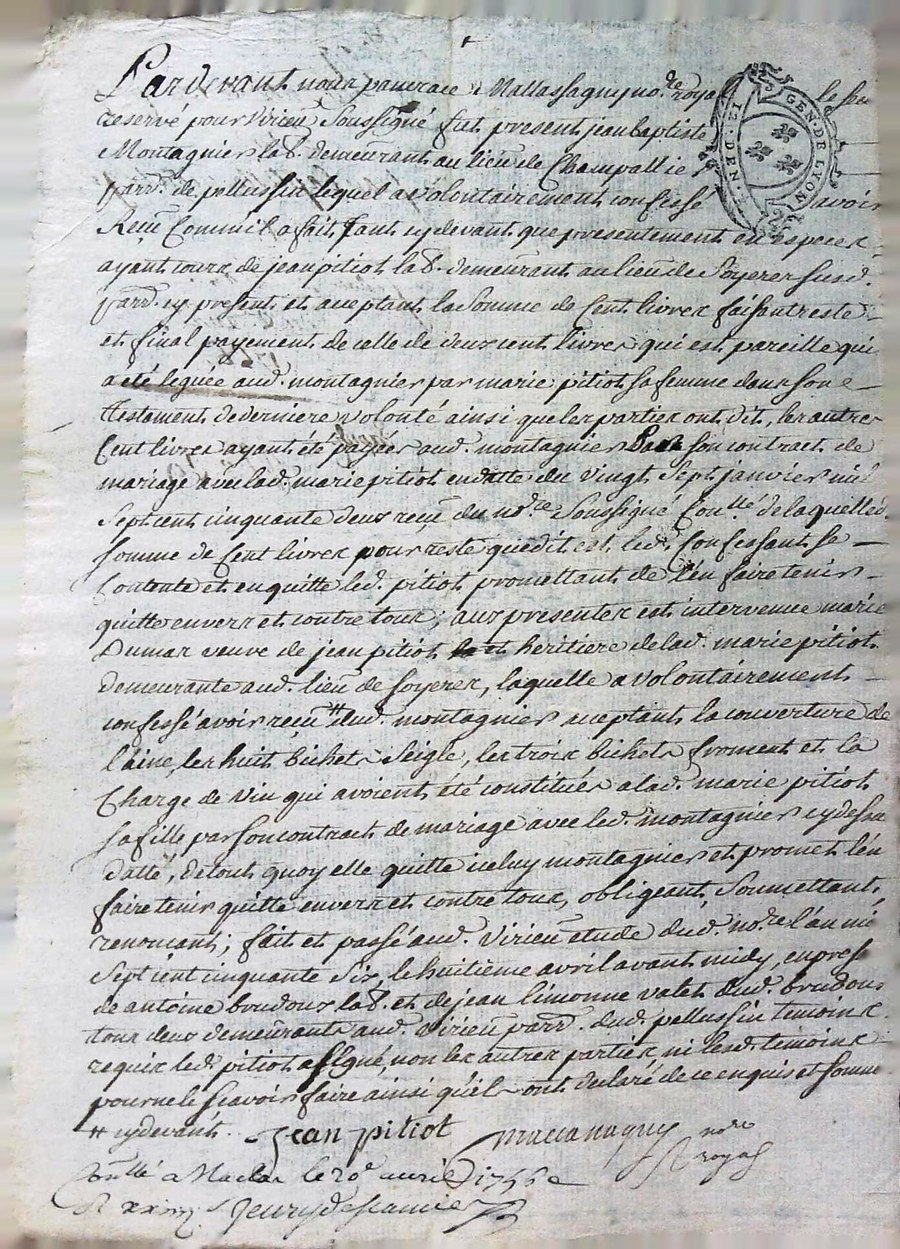 Pardevant nous pancrace Mallassagny no.re royal
reservé pour Virieu Soussigné fut present jean baptiste
Montagnier lab. demeurant au lieu de Champallie
parr. de pellussin lequel a volontairement confessé avoir
Reçu Comm'il a fait tant cydevant que presentement en especes
ayant cours de jean pitiot lab. demeurant au lieu de Soyeres susd.
parr. cy present et acceptant la Somme de Cent livres faisant reste
et final payement de celle de deux cent livres qui est pareille qui
a été leguée aud. montagnier par marie pitiot sa femme dans son
testament de derniere volonté ainsi que les parties ont dit, les autres
Cent livres ayant été payées aud. montagnier son contract de
mariage avec lad. marie pitiot en datte du vingt Sept janvier mil
Sept cent cinquante deux reçu du no.re Soussigné Con.llé de laquelle
somme de Cent livres pour reste que dit est led. Confessant se
Contente et en quitte led. pitiot promettant de l'en faire tenir
quitte envers et contre tous; aux presentes est intervenue marie
Dumas veuve de jean pitiot et heritiere de lad. marie pitiot
demeurante aud. lieu de soyeres, laquelle a volontairement
confessé avoir reçu # dud. montagnier acceptant la couverture de
laine, les huit bichets Seigle, les trois bichets froment et la
Charge de vin qui avoient été constitués a lad. marie pitiot
sa fille par son contract de mariage avec led. montagnier cy dessus
datté, de tout quoy elle quitte iceluy montagnier et promet l'en
faire tenir quitte envers et contre tous, obligeant, Soumettant,
renoncant; fait et passé aud. Virieu étude dud. no.re l'an mil
Sept cent cinquante Six, le huitième avril avant midy, en pres.
de antoine brudous lab. et de jean limonne valet dud. brudous
tous deux demeurants aud. Virieu parr. dud. pellussin temoins
requis led. pitiot a signé, non les autres parties, ni lesd. temoins
pour ne le sçavoir faire ainsi qu'ils ont declaré de ce enquis et sommés
# cydevant. jean pitiot Mallassagny no.re
royal
Con.llé a Maclas le 20e avril 1756
R
GEN. DE LYON